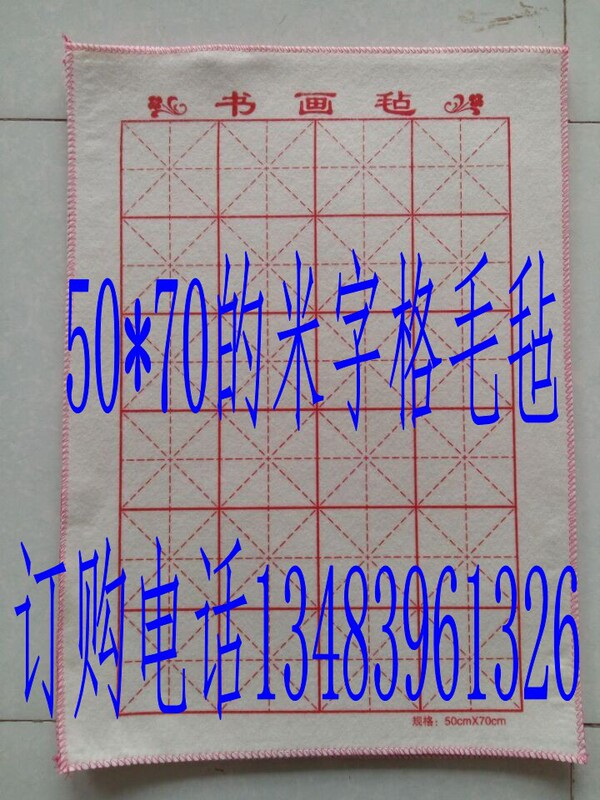 书画毡
50*70的米字格毛毡
订购电话13483961326
规格：50cmX70cm